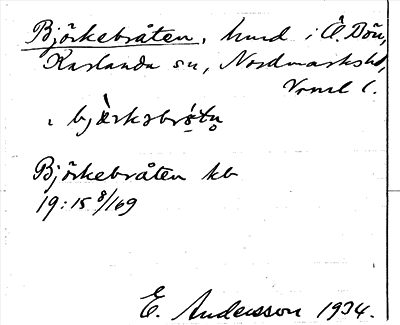 Björkebråten, hmd i Ö. Bön,
Karlanda sn, Nordmarks hd,
Vrml l.
Björkebråten kb
19:15 8/169
E. Andersson 1934.